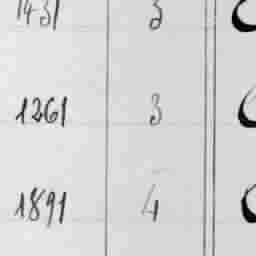 1431 3
1261 3
1891 4